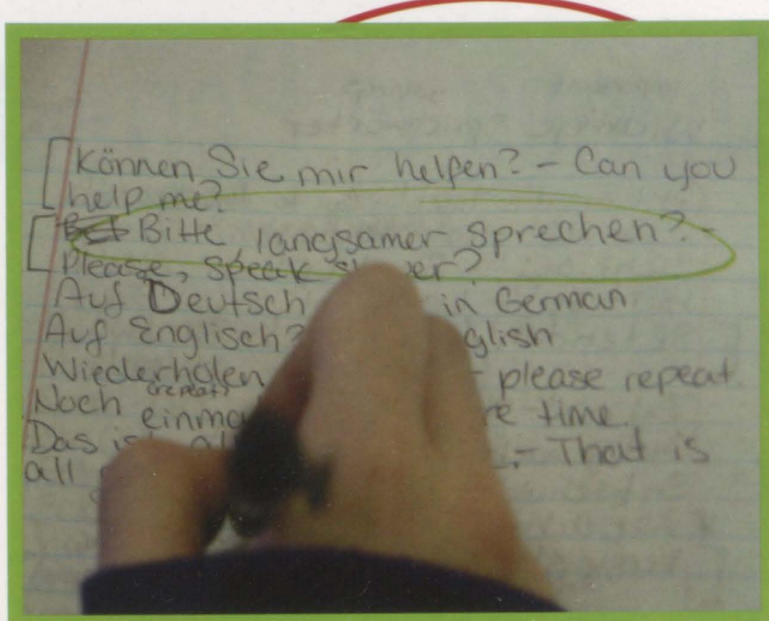 Können Sie mir helfen? - Can you
help me?
Bitte langsamer sprechen? -
Please, speak
Auf Deutsch in German
Auf Englisch?
Wiederholen - please repeat.
(repeat)
Noch time.
Das ist - That is
all